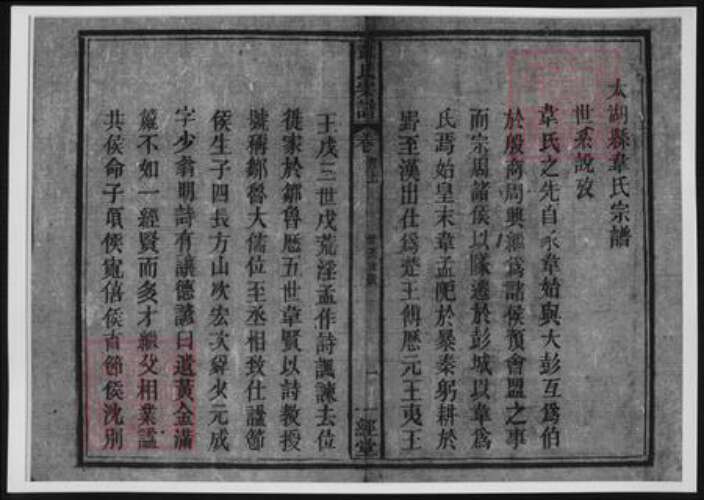 太湖縣韋氏宗譜
世系說攷
韋氏之先自豕韋始與大彭互爲伯
於殷商周興繼爲諸侯預會盟之事
而宗周諸侯以隊遷於彭城以韋爲
氏焉始皇末韋孟阨於暴秦躬耕於
野至漢出仕爲楚王傅歷元王夷王
氏宗譜
卷
一
一經堂
王戊三世戊荒淫孟作詩諷諫去位
徙家於鄒魯歷五世韋賢以詩教授
號稱鄒魯大儒位至丞相致仕謚節
侯生子四長方山次宏次舜少元成
字少翁明詩有讓德諺曰遺黃金滿
籯不如一經賢而多才繼父相業謚
共侯命子頃侯寬僖侯育節侯沈別